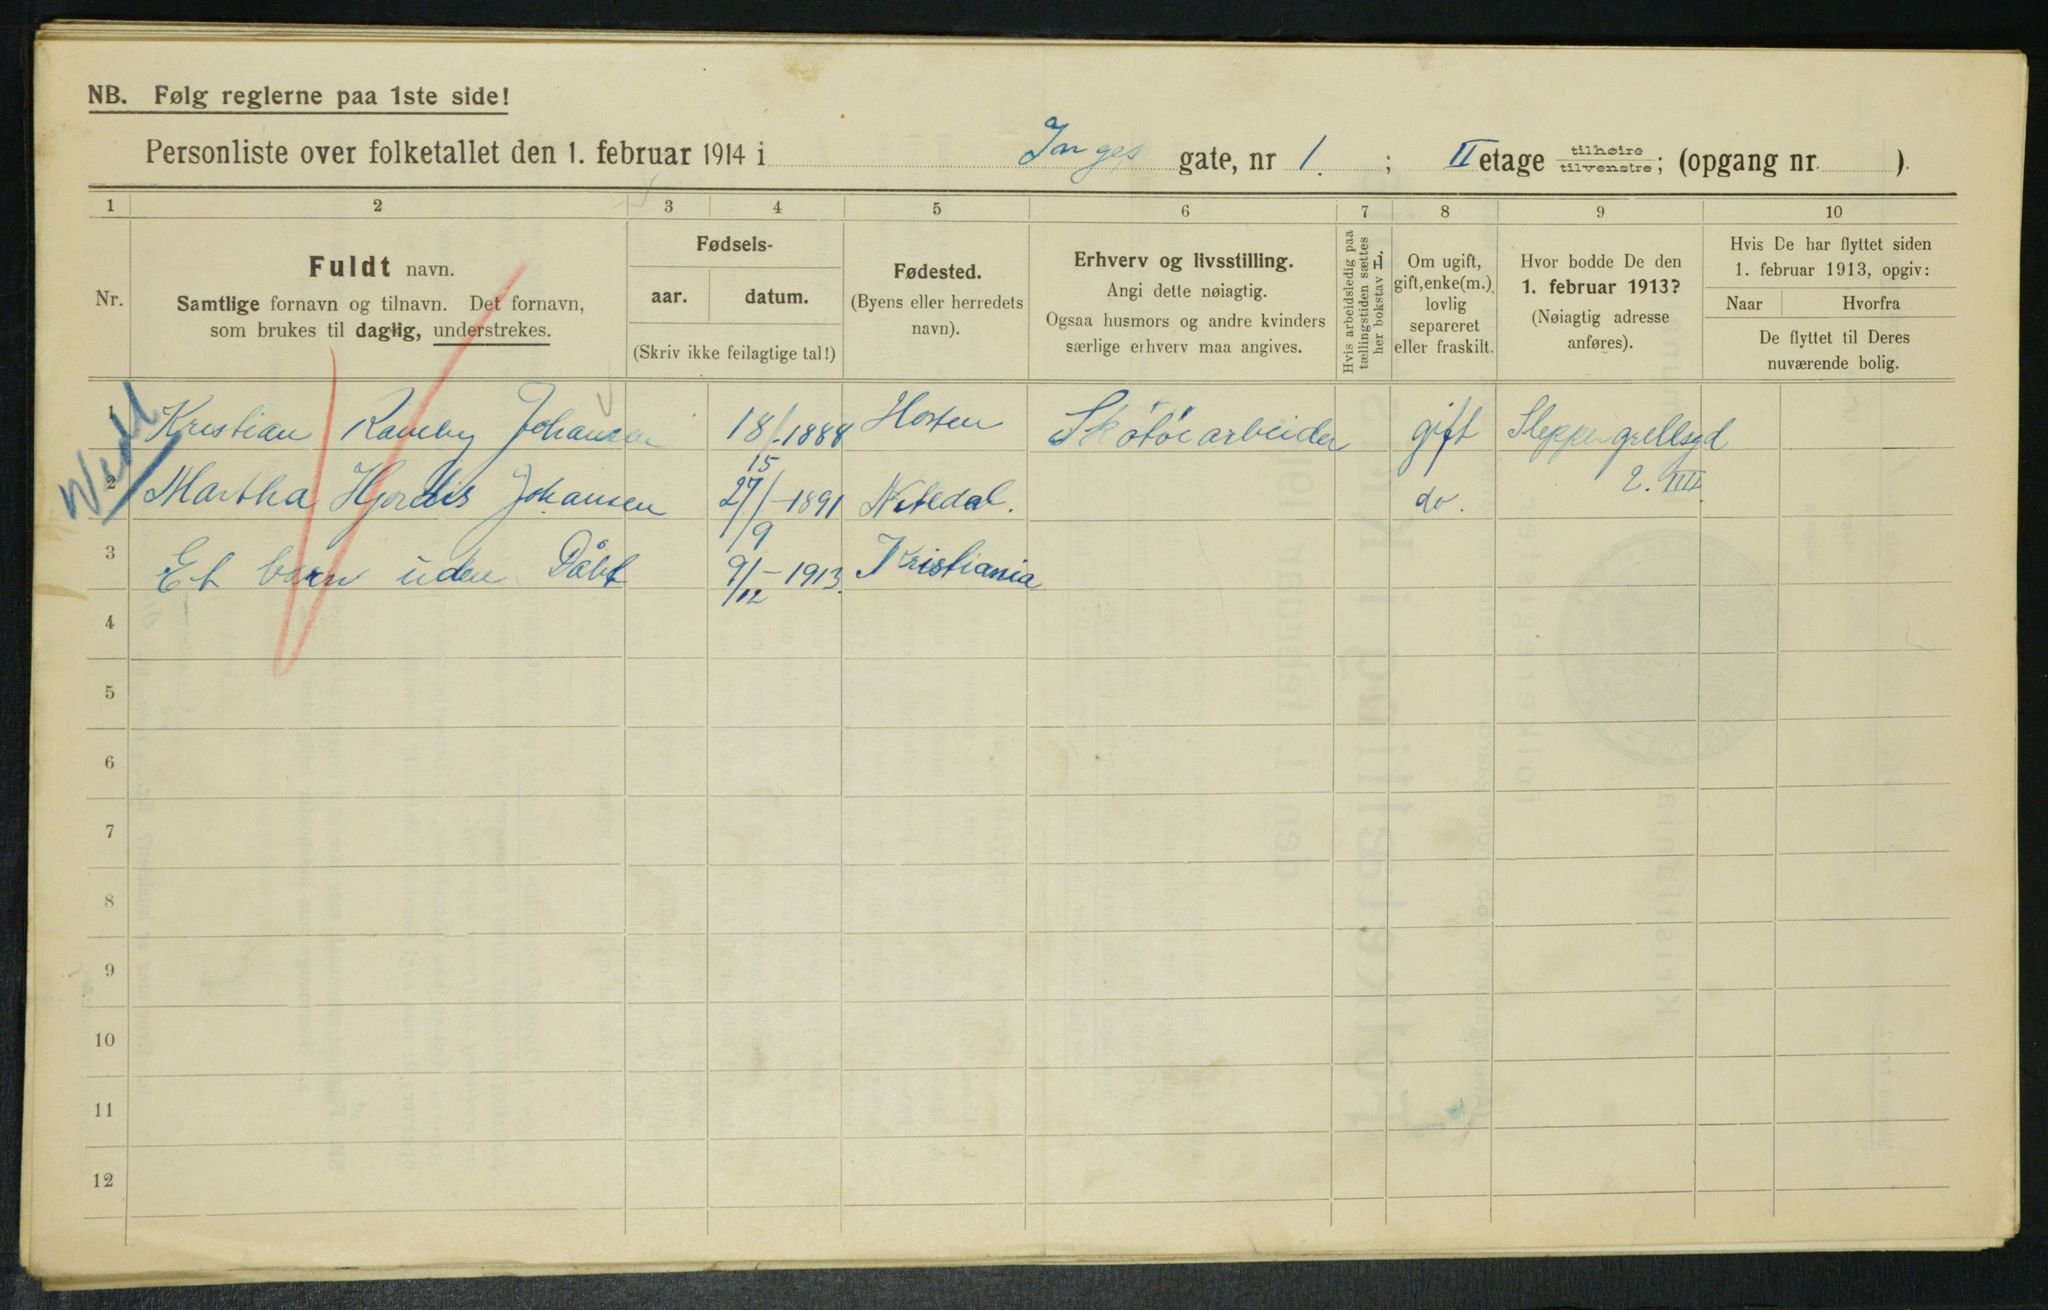 NB. Følg reglerne paa 1ste side!
Personliste over folketallet den 1. februar 1914 i Inges gate, nr 1. ; II etage tilhøire/tilvenstre; (opgang nr. ).
1 2 3 4 5 6 7 8 9 10
Nr.
Fuldt navn.
Samtlige fornavn og tilnavn. Det fornavn,
som brukes til daglig, understrekes.
Fødsels-
aar. datum.
(Skriv ikke feilagtige tal!)
Fødested.
(Byens eller herredets
navn).
Erhverv og livsstilling.
Angi dette nøiagtig.
Ogsaa husmors og andre kvinders
særlige erhverv maa angives.
Hvis arbeidsledig paa
tællingstiden sættes
her bokstav L.
Om ugift,
gift, enke(m.),
lovlig
separeret
eller fraskilt.
Hvor bodde De den
1. februar 1913?
(Nøiagtig adresse
anføres).
Hvis De har flyttet siden
1. februar 1913, opgiv:
Naar Hvorfra
De flyttet til Deres
nuværende bolig.
1 Kristian Johansen 18/15-1888 Horten Skotøiarbeider gift Sleppengrellsgd
2 Martha Hjordis Johansen 27/9-1891 Nitedal. do. 2. IIII
3 Et barn uden Dåbt 9/12-1913. Kristiania
4
5
6
7
8
9
10
11
12